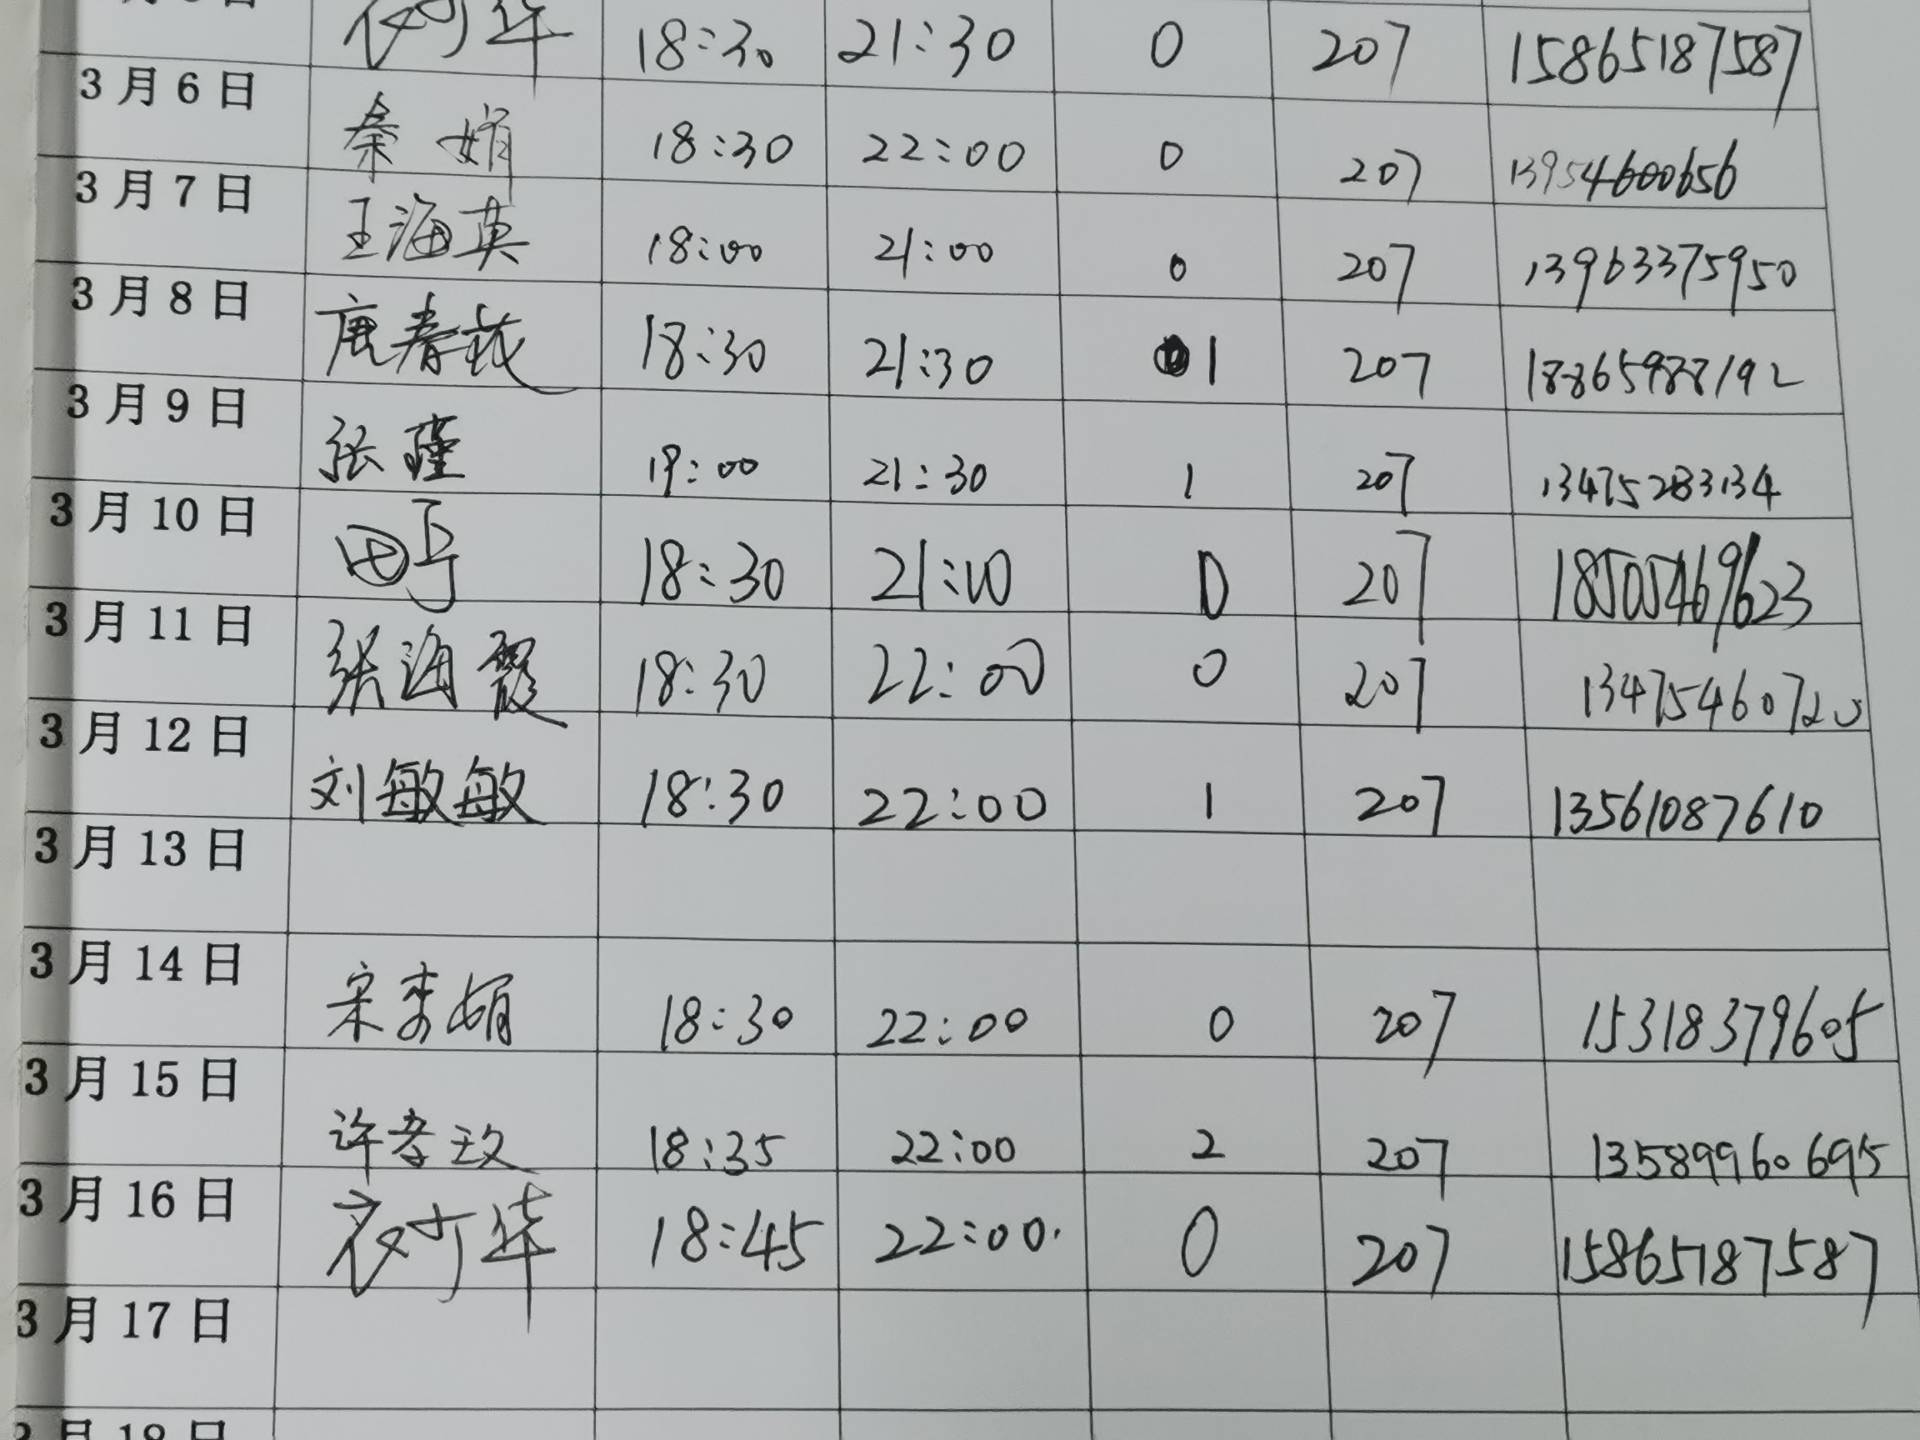 18:30 21:30 0 207 15865187587
3月6日 秦娟 18:30 22:00 0 207 13954600656
3月7日 王海英 18:00 21:00 0 207 13963375950
3月8日 唐春花 18:30 21:30 1 207 18865988192
3月9日 张瑾 19:00 21:30 1 207 13475283134
3月10日 田 18:30 21:00 0 207 18505469623
3月11日 张海霞 18:30 22:00 0 207 13475460720
3月12日 刘敏敏 18:30 22:00 1 207 13561087610
3月13日
3月14日 宋李娟 18:30 22:00 0 207 15318379605
3月15日 许孝玫 18:35 22:00 2 207 13589960695
3月16日 18:45 22:00. 0 207 15865187587
3月17日